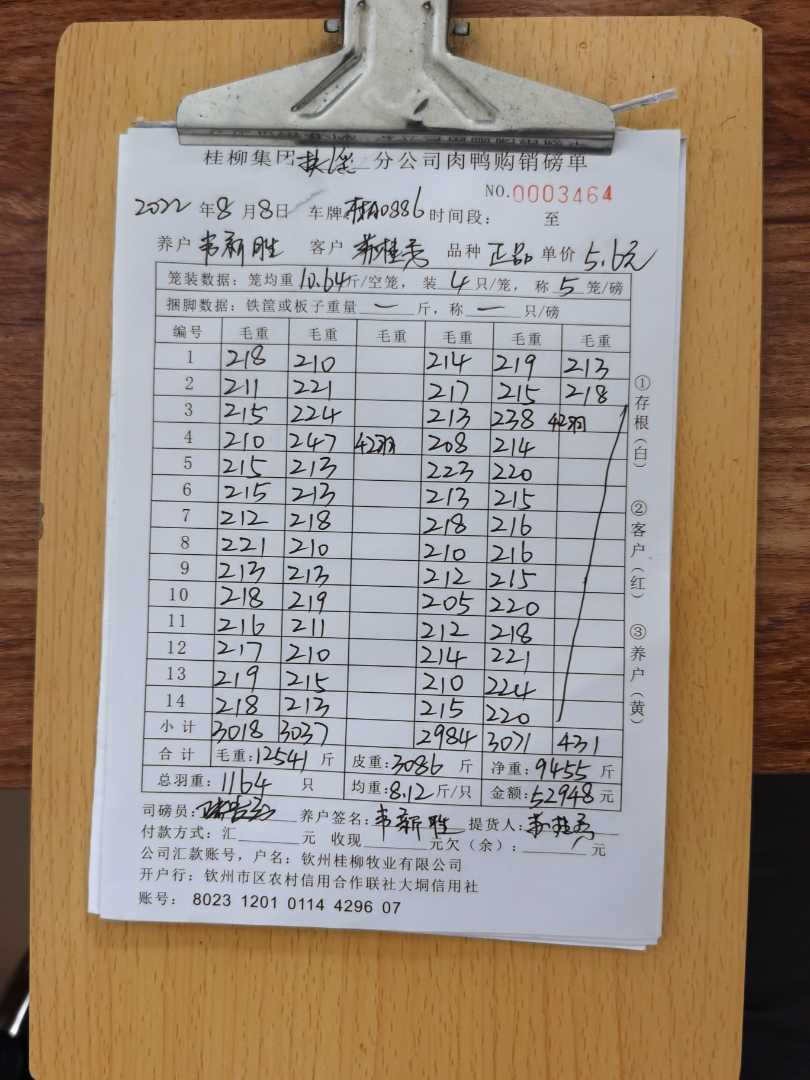 桂柳集团扶绥分公司肉鸭购销磅单
NO.0003464
2022年8月8日 车牌桂A0886时间段: 至
养户 韦新胜 客户 苏桂秀 品种 正品 单价 5.6元
笼装数据：笼均重10.64斤/空笼，装 4 只/笼，称 5 笼/磅
捆脚数据：铁筐或板子重量 一 斤，称 一 只/磅
编号 毛重 毛重 毛重 毛重 毛重 毛重
1 218 210 214 219 213
2 211 221 217 215 218
3 215 224 213 238 42羽
4 210 247 42羽 208 214
5 215 213 223 220
6 215 213 213 215
7 212 218 218 216
8 221 210 210 216
9 213 213 212 215
10 218 219 205 220
11 216 211 212 218
12 217 210 214 221
13 219 215 210 224
14 218 213 215 220
小计 3018 3037 2984 3071 431
合计 毛重:12541斤 皮重:3086斤 净重:9455斤
总羽重:1164 只 均重:8.12斤/只 金额:52948元
司磅员: 养户签名:韦新胜 提货人:苏桂秀
付款方式：汇 元 收现 元欠（余）: 元
公司汇款账号，户名：钦州桂柳牧业有限公司
开户行：钦州市区农村信用合作联社大垌信用社
账号： 8023 1201 0114 4296 07
①存根（白）
②客户（红）
③养户（黄）